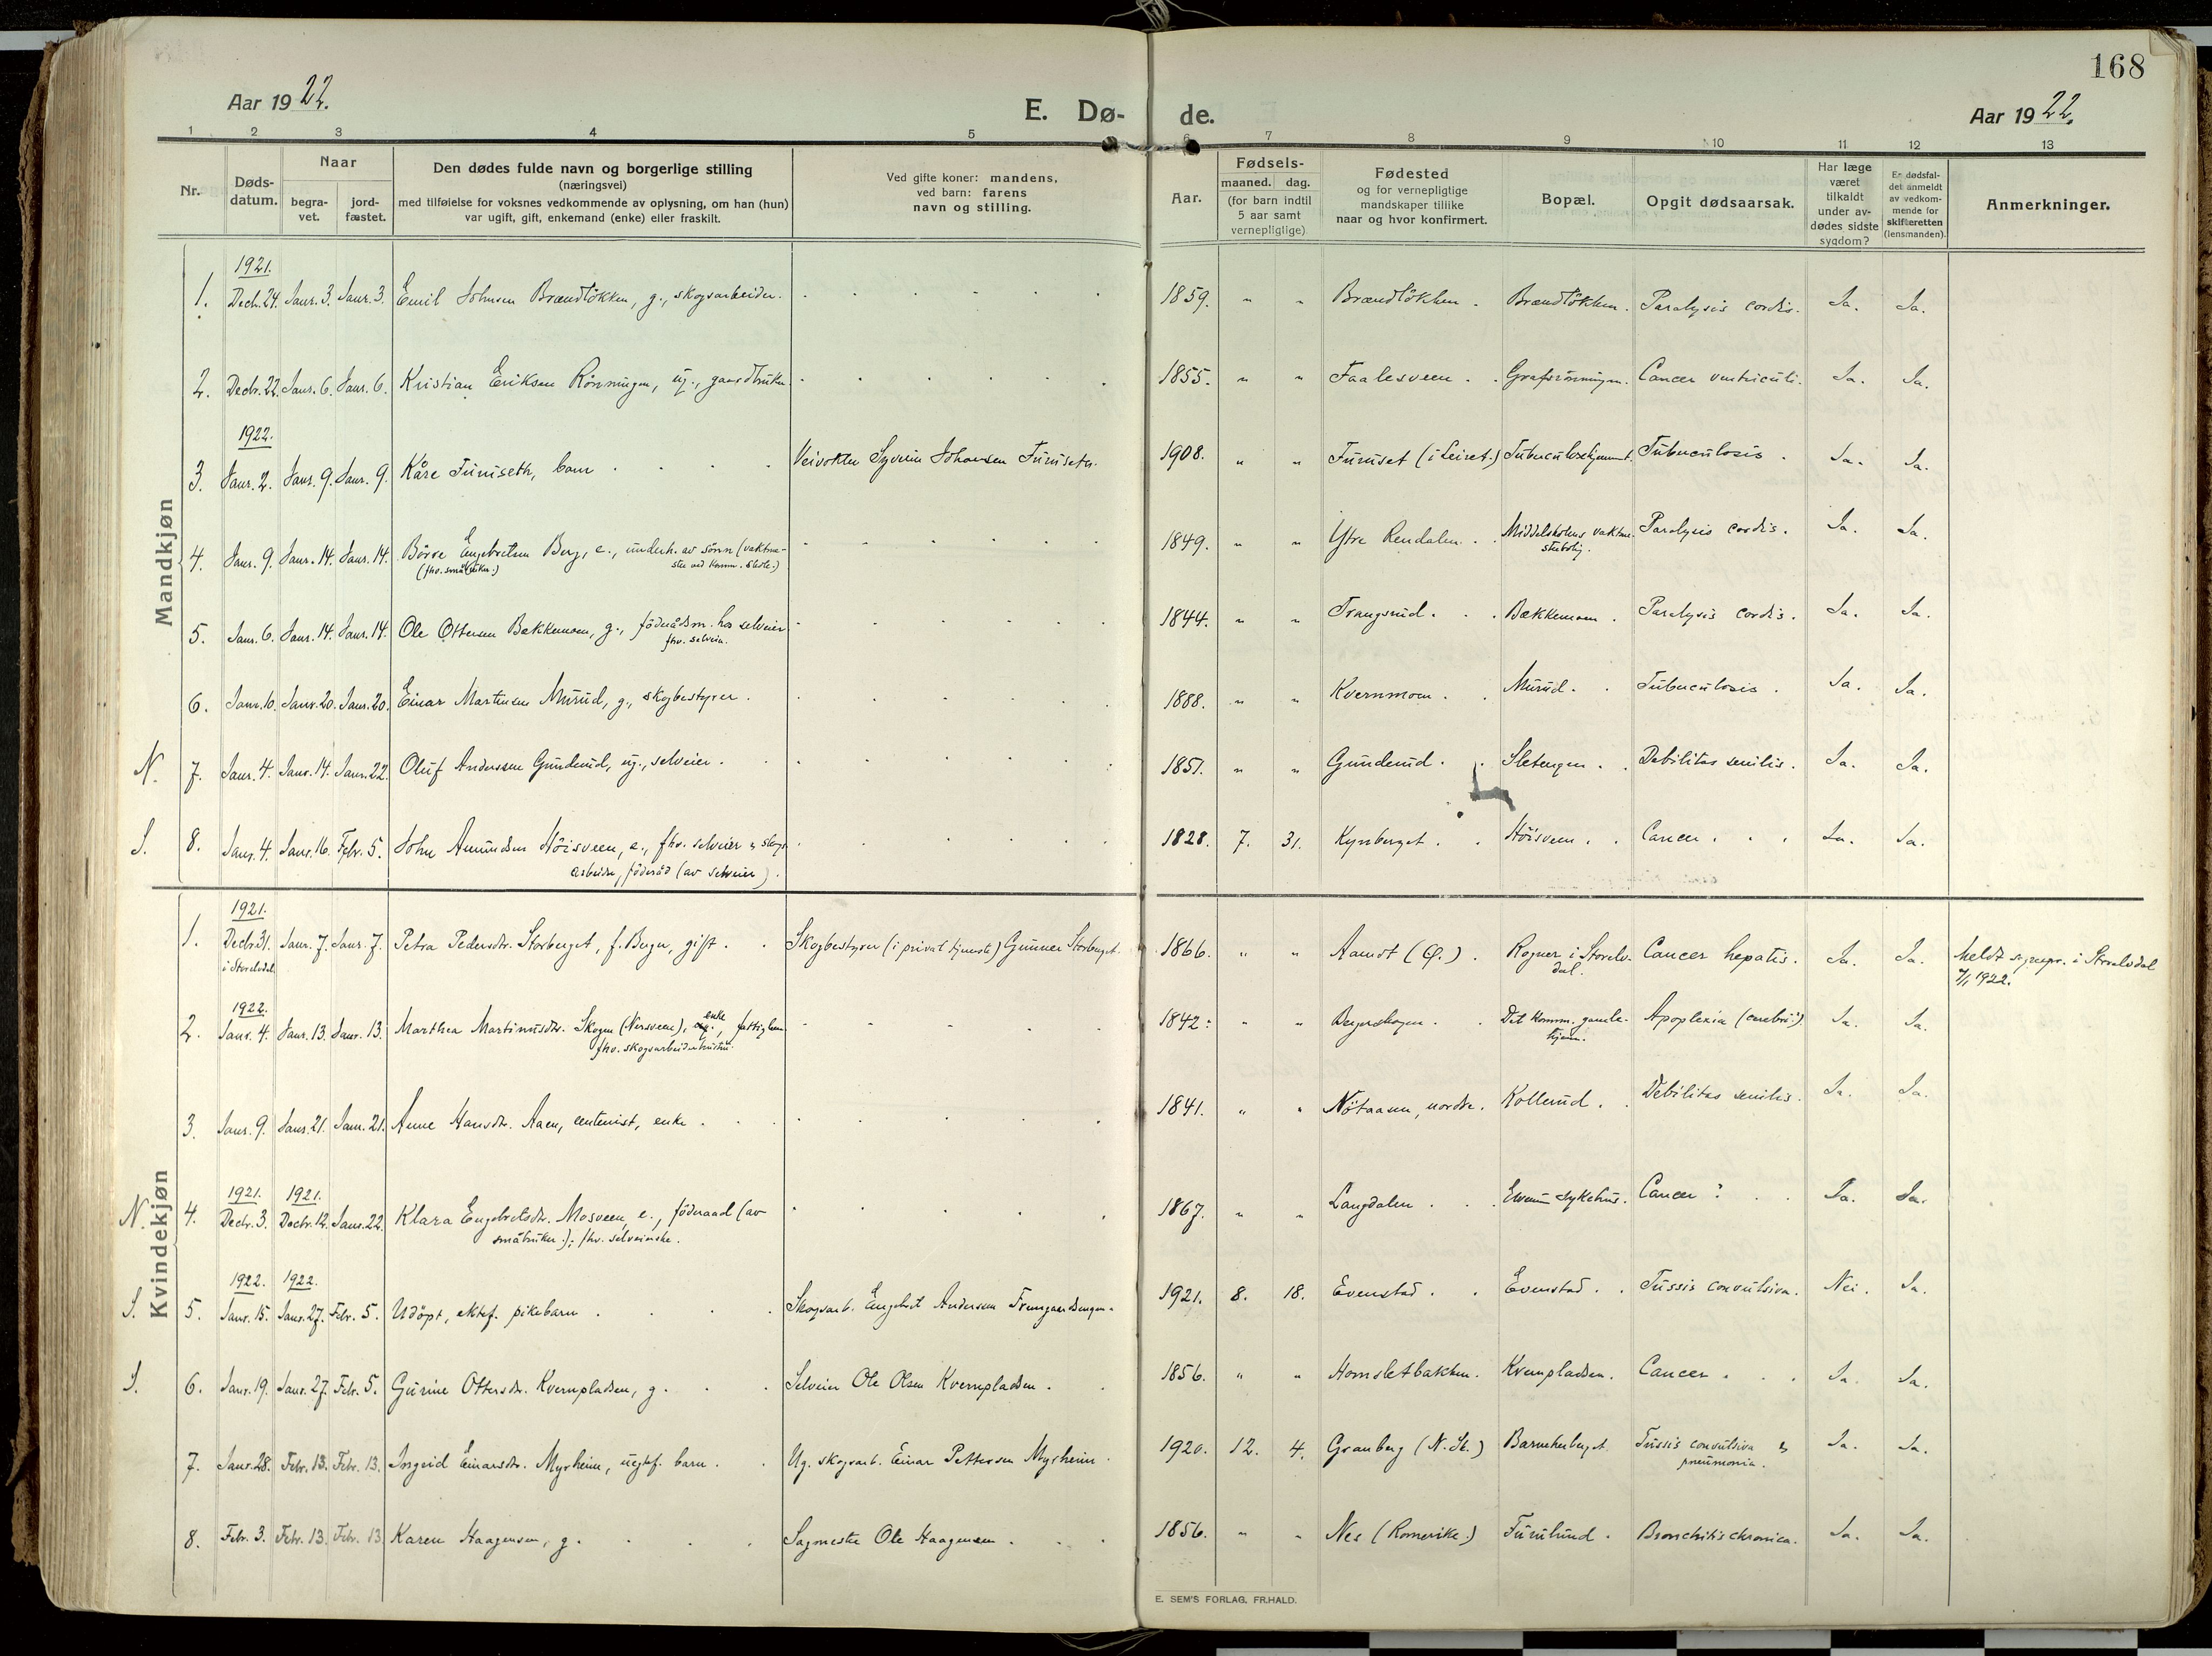 168
Aar 1922.
E. Dø-
de.
Aar 1922.
1 2 3 4 5 6 7 8 9 10 11 12 13
Nr.
Døds-
datum.
Naar
begra-
vet.
jord-
fæstet.
Den dødes fulde navn og borgerlige stilling
(næringsvei)
med tilføielse for voksnes vedkommende av oplysning, om han (hun)
var ugift, gift, enkemand (enke) eller fraskilt.
Ved gifte koner: mandens,
ved barn: farens
navn og stilling.
Aar.
Fødsels-
maaned. dag.
(for barn indtil
5 aar samt
vernepligtige)
Fødested
og for vernepligtige
mandskaper tillike
naar og hvor konfirmert.
Bopæl.
Opgit dødsaarsak.
Har læge
været
tilkaldt
under av-
dødes sidste
sygdom?
Er dødsfal-
det anmeldt
av vedkom-
mende for
skifteretten
(lensmanden).
Anmerkninger.
Mandkjøn
1921.
1. Decbr. 24. Janr. 3. Janr. 3. Emil Johnsen Brændløkken, g., skogsarbeider. 1859. " " Brændløkken. Brændløkken. Paralysis cordis. Ja. Ja.
2. Decbr. 22. Janr. 6. Janr. 6. Kristian Eriksen Rønningen, ug., gaardbruker 1855. " " Faalesveen. Grafsrønningen. Cancer ventriculi. Ja. Ja.
1922.
3. Janr. 2. Janr. 9. Janr. 9. Kåre Furuseth, barn Veivokter Syverin Johansen Furuseth. 1908. " " Furuset (i Leiret.) Tuberculosehjemmet. Tuberculosis. Ja. Ja.
4. Janr. 9. Janr. 14. Janr. 14. Børre Engebretsen Berg, e., underh. av sønn (vaktme-
(fhv. småbruker.) ster ved komm. skole.) 1849. " " Ytre Rendalen. Middelskolens vaktme-
sterbolig. Paralysis cordis. Ja. Ja.
5. Janr. 6. Janr. 14. Janr. 14. Ole Ottersen Bækkemoen, g., föderådsm. hos selveier
fhv. selveier. 1844. " " Trangsrud. Bækkemoen. Paralysis cordis. Ja. Ja.
6. Janr. 10. Janr. 20. Janr. 20. Einar Martinsen Murud, g., skogbestyrer. 1888. " " Kvernmoen. Murud. Tuberculosis. Ja. Ja.
N. 7. Janr. 4. Janr. 14. Janr. 22. Oluf Andersen Gunderud, ug., selveier. 1851. " " Gunderud. Sletengen. Debilitas senilis. Ja. Ja.
S. 8. Janr. 4. Janr. 16. Febr. 5. John Amundsen Høisveen, e., fhv. selveier & skogs
arbeider, föderåd (av selveier). 1828. 7. 31. Kynberget. Høisveen. Cancer. Ja. Ja.
Kvindekjøn
1921.
1. Decbr. 31. Janr. 7. Janr. 7. Petra Pedersdtr. Storberget, f. Berger, gift. Skogbestyrer (i privat tjeneste) Gunner Storberget. 1866. " " Aamot (Ø.). Rogner i Storelv-
dal. Cancer hepatis. Ja. Ja. meldt sognepr. i Storelvdal
i Storelvdal 7/1 1922.
1922.
2. Janr. 4. Janr. 13. Janr. 13. Marthea Martinusdtr. Skogen (Nersveen), enke, fattiglem
fhv. skogsarbeiderhustru. 1842. " " Bergerskogen. Det komm. gamle-
hjem. Apoplexia (cerebri). Ja. Ja.
3. Janr. 9. Janr. 21. Janr. 21. Anne Hansdtr. Aaen, rentenist, enke. 1841. " " Nøtaasen, nordre. Kollerud. Debilitas senilis. Ja. Ja.
1921. 1921.
N. 4. Decbr. 3. Decbr. 12. Janr. 22. Klara Engebretsdtr. Mosveen, e., föderaad (av
småbruker.); fhv. selveierske. 1867. " " Langdalen. Elverum sykehus. Cancer? Ja. Ja.
1922. 1922.
S. 5. Janr. 15. Janr. 27. Febr. 5. Udöpt, ektef. pikebarn Skogsarb. Engebret Andersen Fremgaardsengen. 1921. 8. 18. Evenstad. Evenstad. Tussis convulsiva. Nei. Ja.
S. 6. Janr. 19. Janr. 27. Febr. 5. Gurine Ottersdtr. Kvernpladsen, g. Selveier Ole Olsen Kvernpladsen. 1856. " " Hornsletbakken. Kvernpladsen. Cancer. Ja. Ja.
7. Janr. 28. Febr. 13. Febr. 13. Ingrid Einarsdtr. Myrheim, uegtef. barn. Ug. skogsarb. Einar Pettersen Myrheim. 1920. 12. 4. Granberg (N. Sk.) Barneherberget. Tussis convulsiva &
pneumonia. Ja. Ja.
8. Febr. 3. Febr. 13. Febr. 13 Karen Haagensen, g. Sagmester Ole Haagensen. 1856. " " Nes (Romerike.) Furulund. Bronchitis chronica. Ja. Ja.
E. SEM'S FORLAG, FR.HALD.